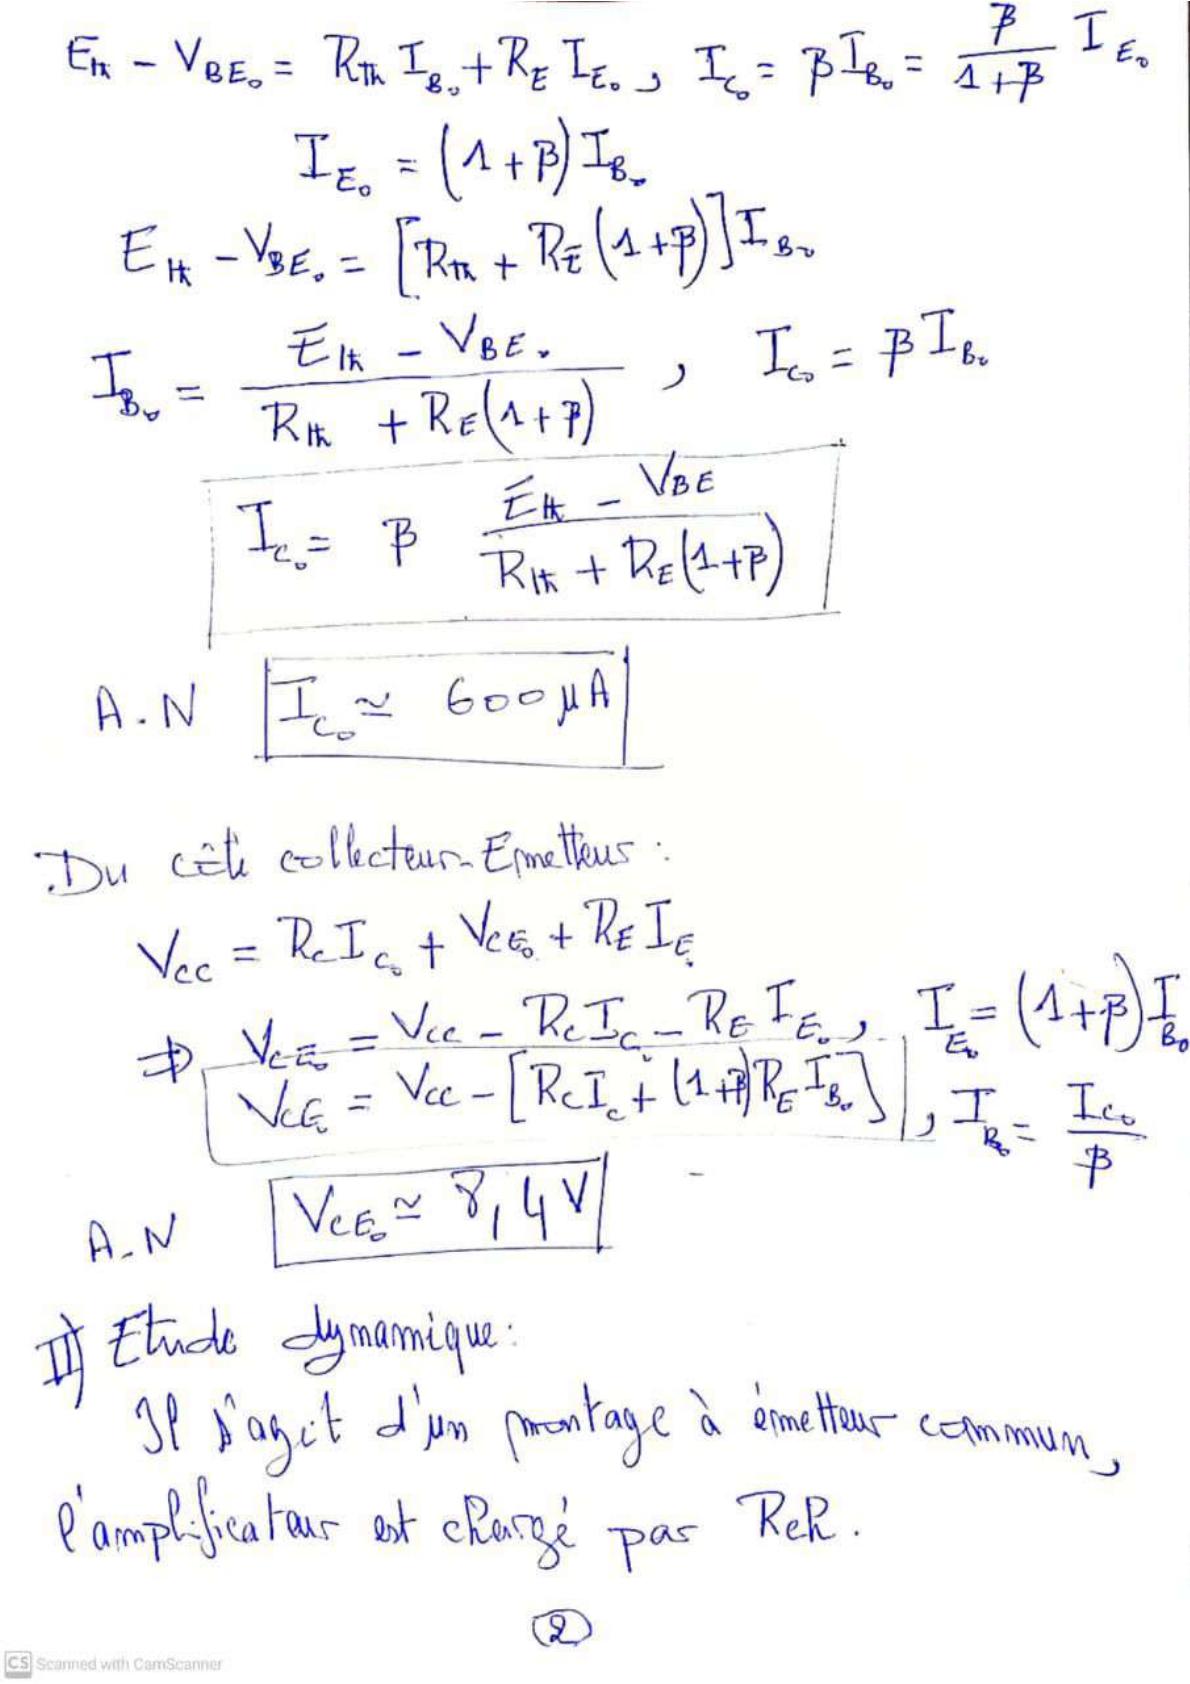 E_th - V_BE₀ = R_Th I_B₀ + R_E I_E₀, I_C₀ = β I_B₀ = β/(1+β) I_E₀
I_E₀ = (1+β) I_B₀
E_th - V_BE₀ = [R_Th + R_E (1+β)] I_B₀
I_B₀ = (E_th - V_BE₀)/(R_th + R_E(1+β)), I_C₀ = β I_B₀
I_C₀ = β (E_th - V_BE)/(R_th + R_E(1+β))
A.N I_C₀ ≃ 600 μA
Du côté collecteur-Emetteur :
V_CC = R_C I_C₀ + V_CE₀ + R_E I_E₀
⇒ V_CE₀ = V_CC - R_C I_C₀ - R_E I_E₀, I_E₀ = (1+β) I_B₀
V_CE₀ = V_CC - [R_C I_C + (1+β) R_E I_B₀], I_B₀ = I_C₀/β
A.N V_CE₀ ≃ 8,4 V
II) Etude dynamique :
Il s'agit d'un montage à émetteur commun,
l'amplificateur est chargé par Rch.
2
CS Scanned with CamScanner